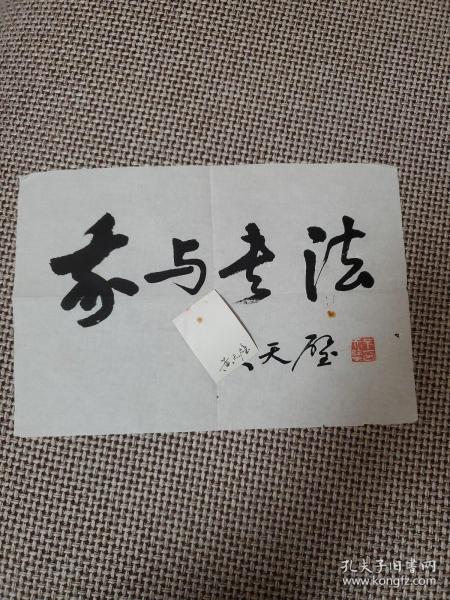 我与书法
天壁
黄天壁
孔夫子旧书网
www.kongfz.com